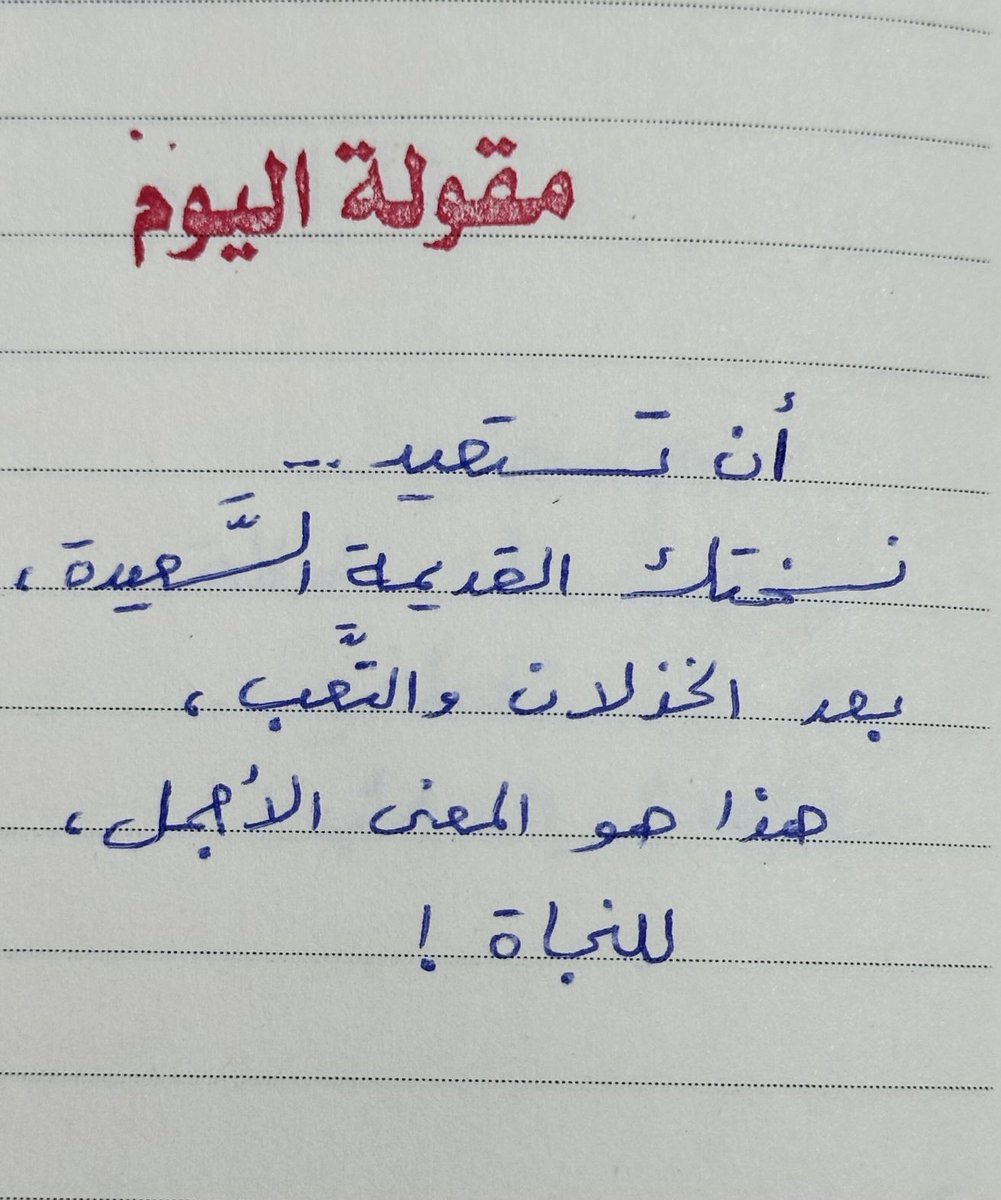 مقولة اليوم
أن تستعيد ...
نسختك القديمة السَّعيدة،
بعد الخذلان والتَّعب،
هذا هو المعنى الأجمل،
للنجاة !